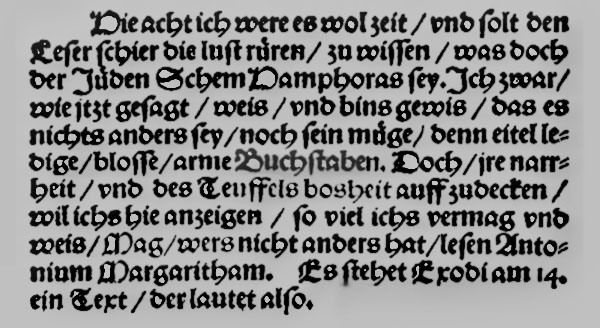 Die acht ich were es wol zeit / vnd solt den
Leser schier die lust rüren / zu wissen / was doch
der Jüden Schem Hamphoras sey. Ich zwar /
wie jtzt gesagt / weis / vnd bins gewis / das es
nichts anders sey / noch sein müge / denn eitel le⸗
dige / blosse / arme Buchstaben. Doch / jre narr⸗
heit / vnd des Teuffels bosheit auff zudecken /
wil ichs hie anzeigen / so viel ichs vermag vnd
weis / Mag / wers nicht anders hat / lesen Anto⸗
nium Margaritham. Es stehet Exodi am 14.
ein Text / der lautet also.